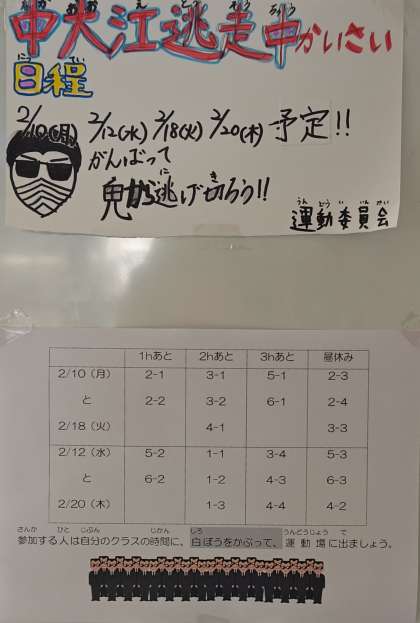 中大江逃走中かいさい
日程
2/10(月) 2/12(水) 2/18(火) 2/20(木) 予定!!
がんばって
鬼から逃げ切ろう!!
運動委員会
1hあと 2hあと 3hあと 昼休み
2/10（月） 2-1 3-1 5-1 2-3
と 2-2 3-2 6-1 2-4
2/18（火） 4-1 3-3
2/12（水） 5-2 1-1 3-4 5-3
と 6-2 1-2 4-3 6-3
2/20（木） 1-3 4-4 4-2
参加する人は自分のクラスの時間に、白ぼうをかぶって、運動場に出ましょう。